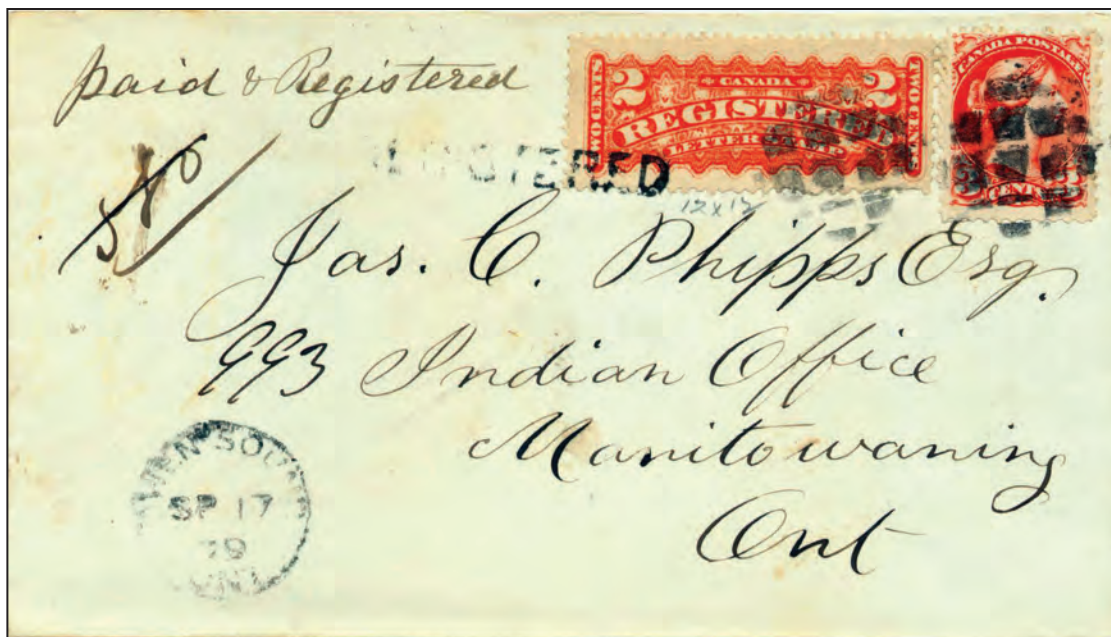 paid & Registered
2 CANADA 2
TWO CENTS REGISTERED TWO CENTS
LETTER STAMP
CANADA POSTAGE
3 CENTS 3
REGISTERED
12x12
Jas. C. Phipps Esq.
993 Indian Office
Manitowaning
Ont
OWEN SOUND
SP 17
79
ONT